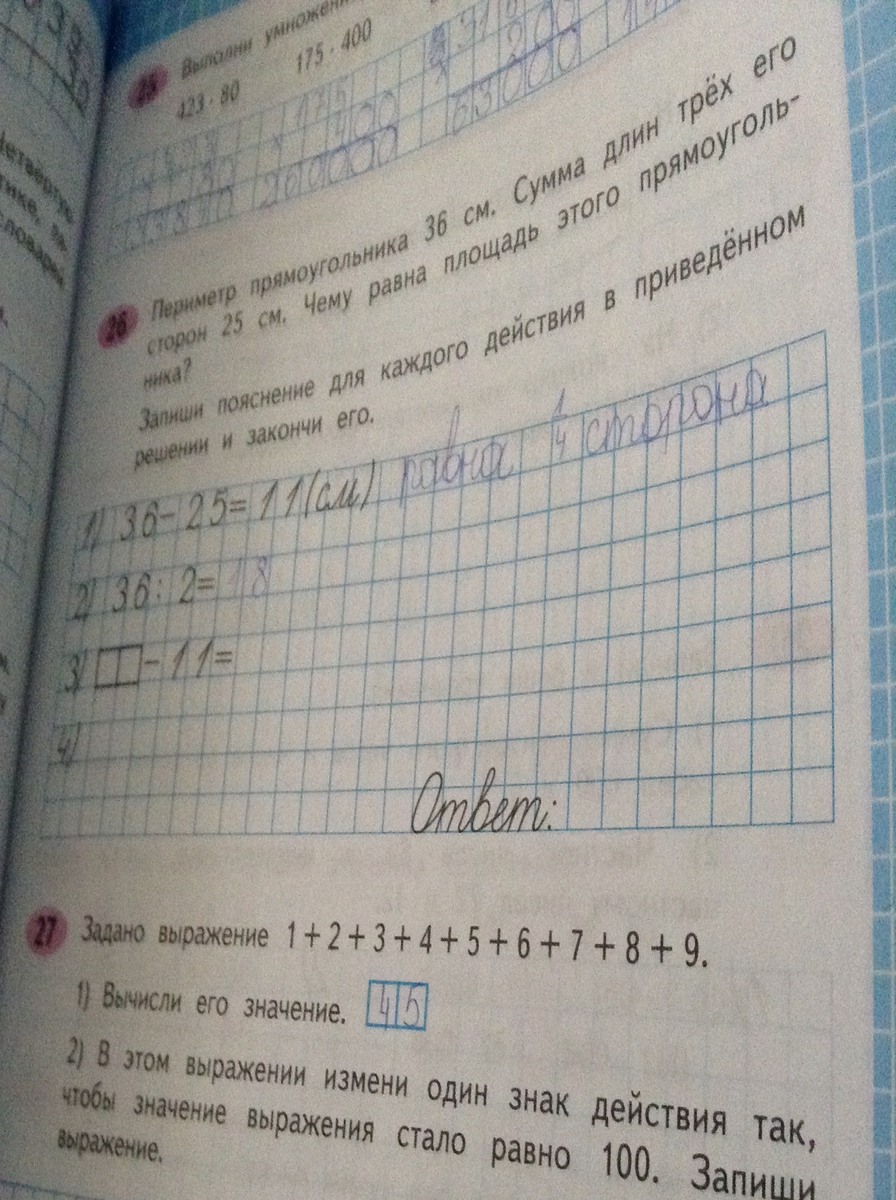 25 Выполни умножен
423 · 80
175 · 400
200
63000
175
400
26 Периметр прямоугольника 36 см. Сумма длин трёх его
сторон 25 см. Чему равна площадь этого прямоуголь-
ника?
Запиши пояснение для каждого действия в приведённом
решении и закончи его.
1) 36-25=11(см) равна 1/4 сторона
2) 36:2=18
3) -11=
4)
Ответ:
27 Задано выражение 1+2+3+4+5+6+7+8+9.
1) Вычисли его значение. 45
2) В этом выражении измени один знак действия так,
чтобы значение выражения стало равно 100. Запиши
выражение.